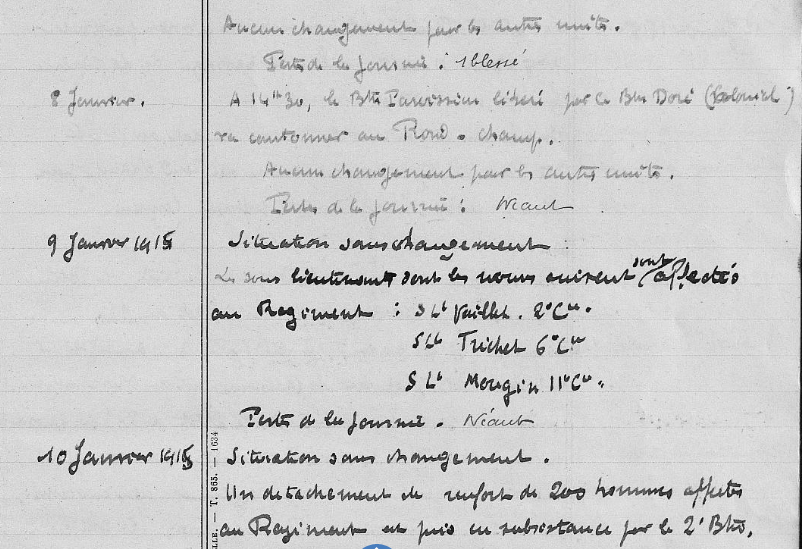 Aucun changement pour les autres unités.
Perte de la journée : 1 blessé
8 Janvier. A 14h30, le Btn Paroissien libéré par le Btn Doré (Colonial)
va cantonner au Rond-champ.
Aucun changement pour les autres unités.
Pertes de la journée : Néant
9 Janvier 1915 Situation sans changement
Les sous lieutenants dont les noms suivent sont affectés
au Régiment : S Lt Vaillet. 2e Cie.
S Lt Trichet 6e Cie
S Lt Mougin 11e Cie.
Perte de la journée. Néant
10 Janvier 1915 Situation sans changement.
Un détachement de renfort de 200 hommes affectés
au Régiment est pris en subsistance par le 2e Btn.
LLE. — T. 865. — 1634